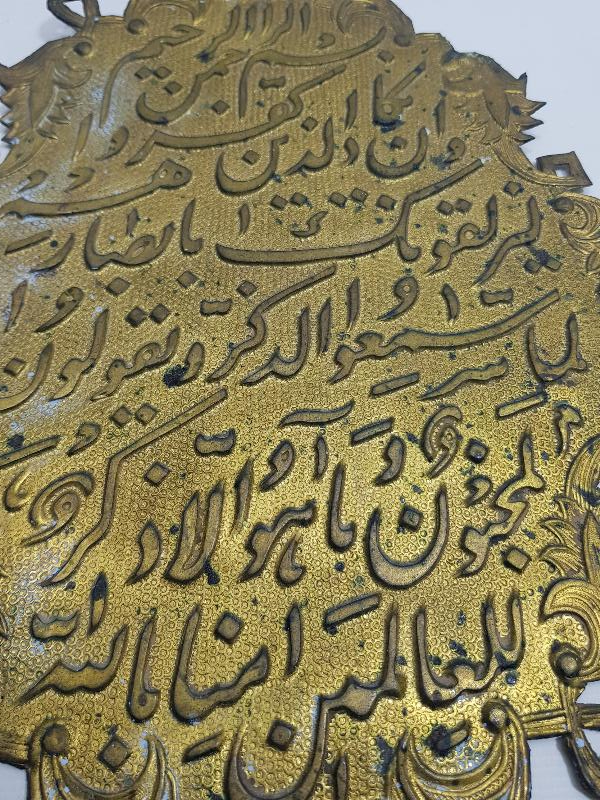 بسم الله الرحمن الرحيم
وان يكاد الذين كفروا
ليزلقونك بابصارهم
لما سمعوا الذكر ويقولون
انه لمجنون وما هو الا ذكر
للعالمين امنا بالله